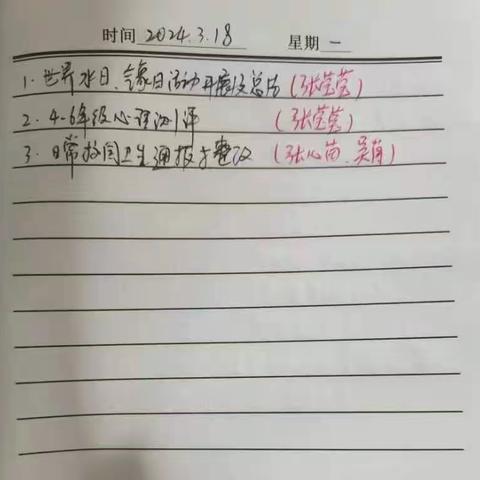 时间 2024.3.18 星期 一
1. 世界水日、气象日活动开展及总结 (张莹莹)
2. 4-6年级心理测评 (张莹莹)
3. 日常校园卫生通报与整改 (张心苗、吴